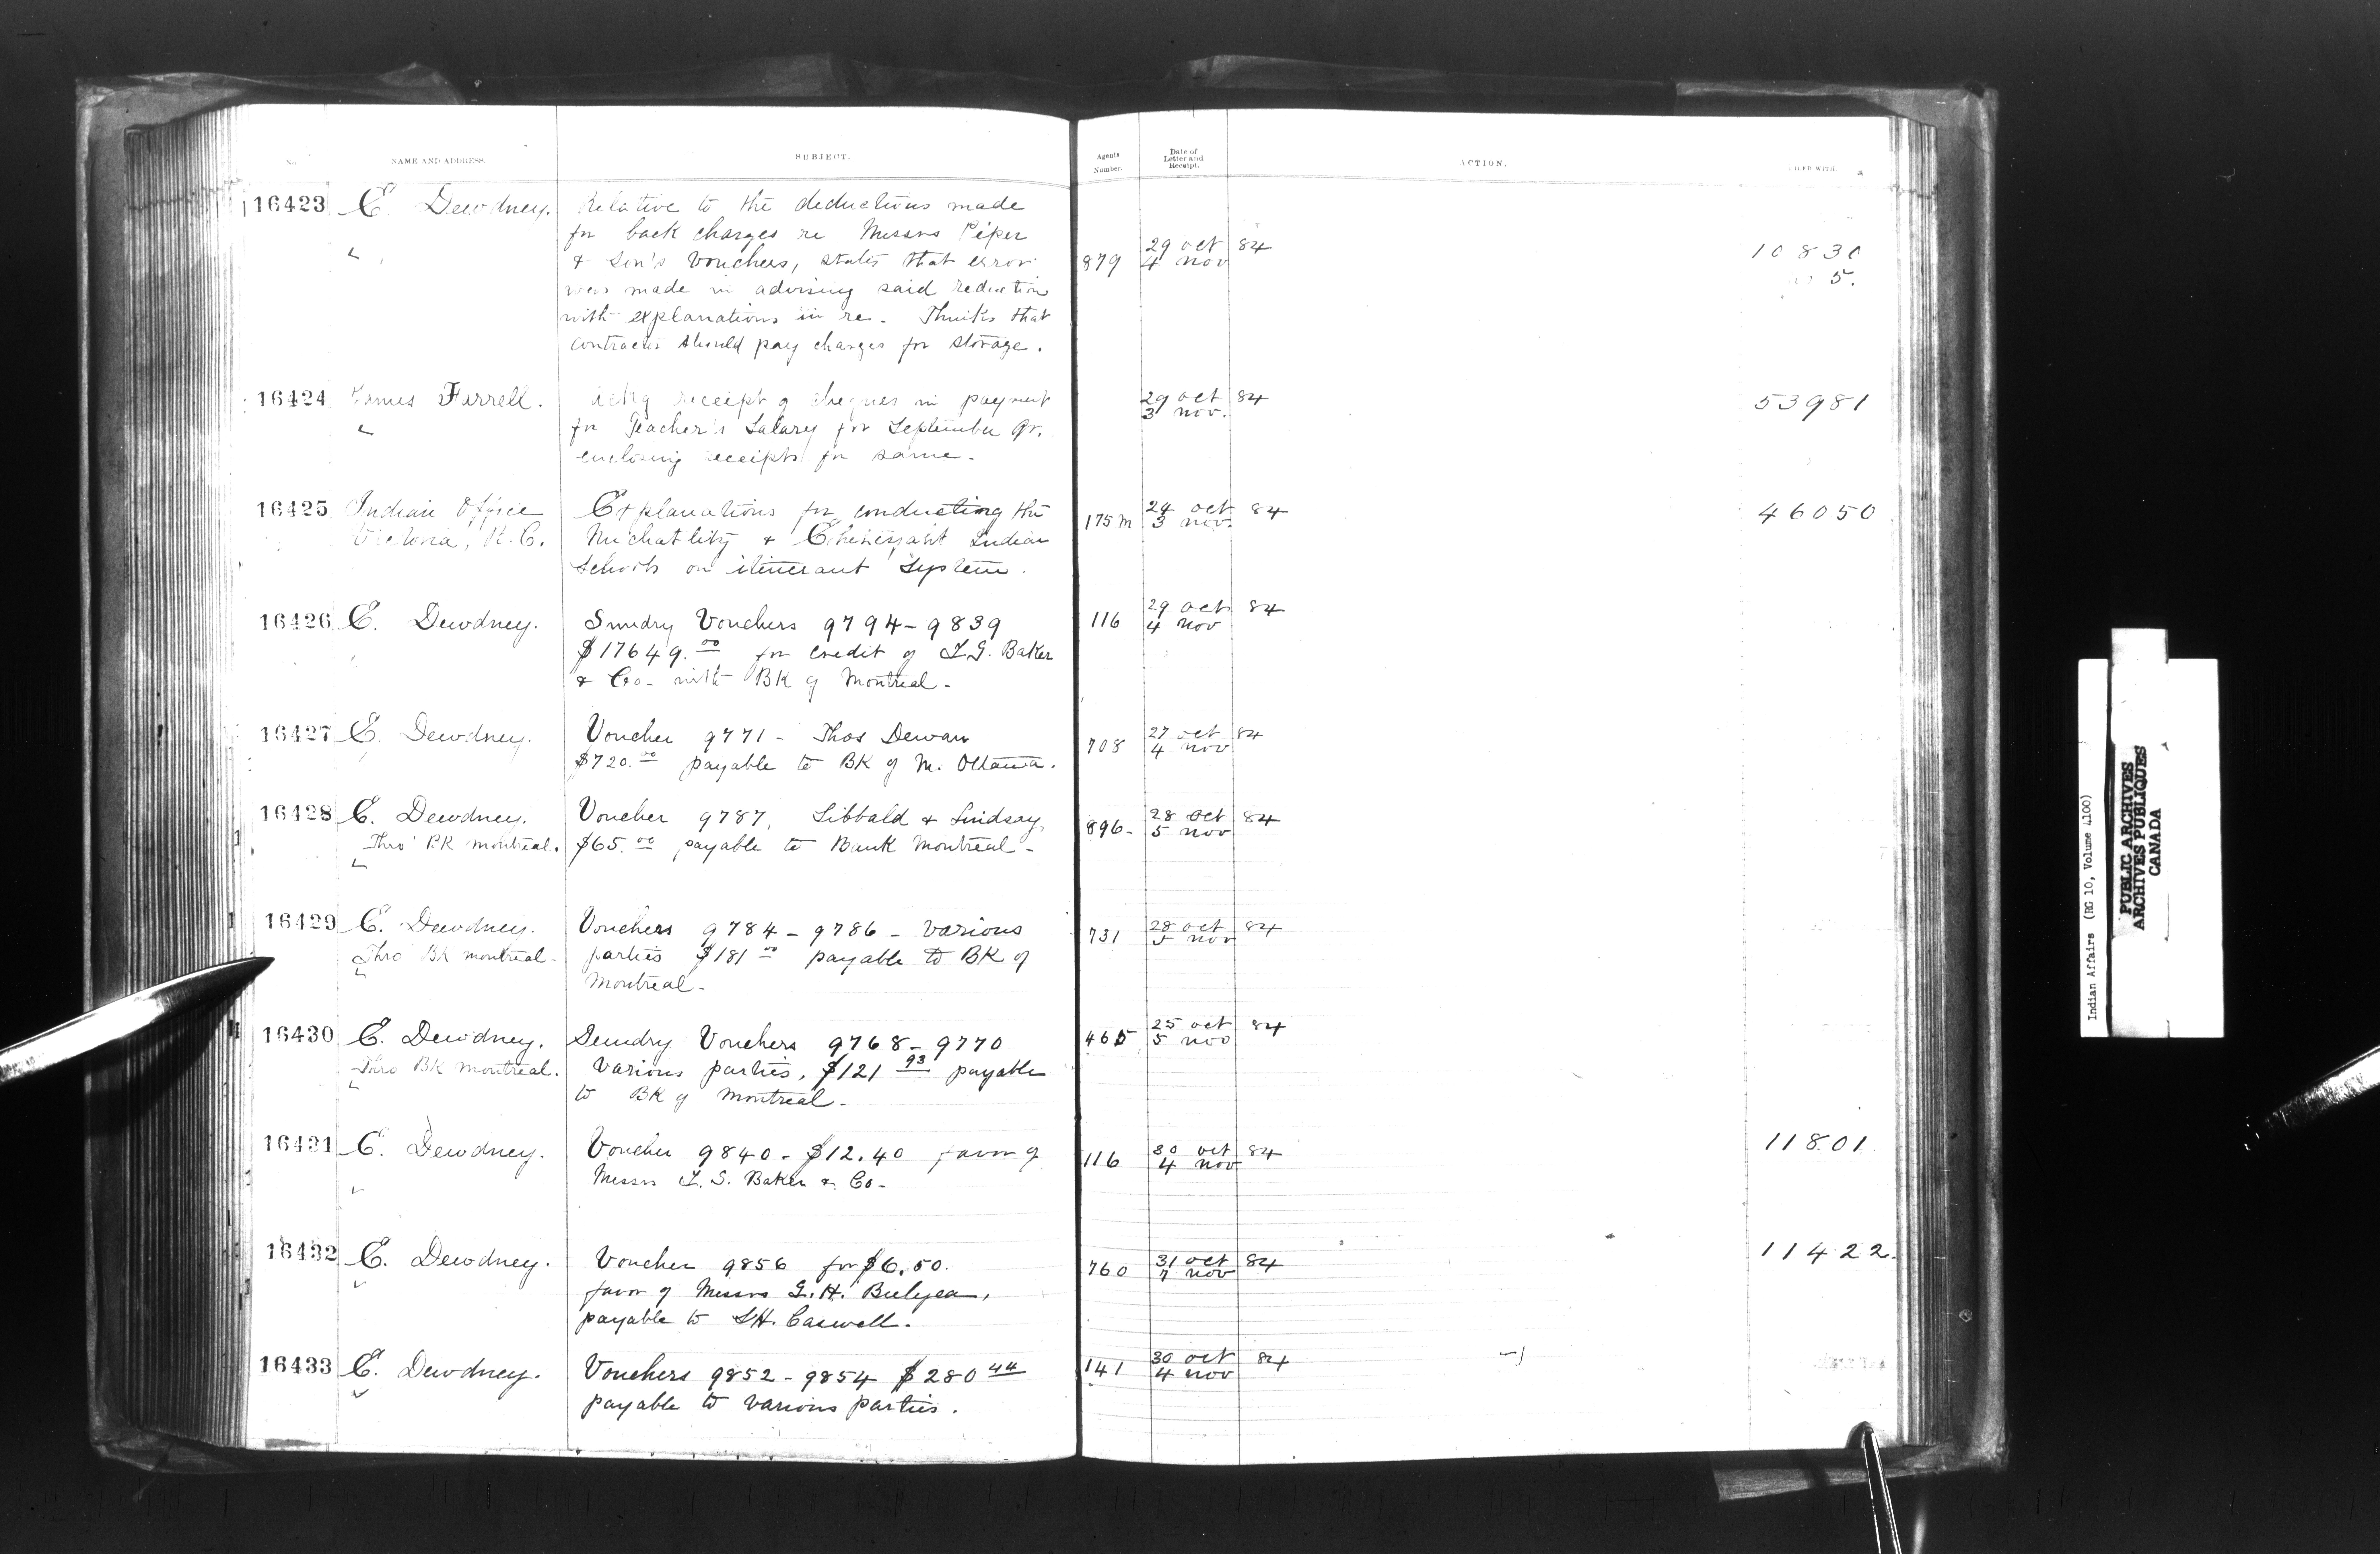 No. NAME AND ADDRESS. SUBJECT. Agents Number. Date of Letter and Receipt. ACTION. FILED WITH.
16423 E. Dewdney. Relative to the deductions made
for back charges re Messrs Piper
& Son's Vouchers, states that error
was made in advising said reduction
with explanations in re. Thinks that
contractor should pay charges for storage.
879 29 oct 84
4 nov
10830
5.
16424 James Farrell. Ackg receipt of cheques in payment
for Teacher's Salary for September Qr.
enclosing receipts for same.
29 oct 84
3 nov.
53981
16425 Indian Office Explanations for conducting the
Victoria, B.C. & Indian
Schools on itinerant System.
175 m 24 oct 84
3 nov
46050
16426 E. Dewdney. Sundry Vouchers 9794-9839
$17649.00 for credit of I.G. Baker
& Co- with BK of Montreal-
116 29 oct 84
4 nov
16427 E. Dewdney. Voucher 9771- Thos Dewan
$720.00 payable to BK of M. Ottawa.
708 27 oct 84
4 nov
16428 E. Dewdney. Voucher 9787, Sibbald & Lindsay,
Thro' BK Montreal. $65.00 payable to Bank Montreal-
896- 28 oct 84
5 nov
16429 E. Dewdney. Vouchers 9784-9786- various
Thro BK montreal- parties $181 00 payable to BK of
Montreal-
731 28 oct 84
5 nov
16430 E. Dewdney. Sundry Vouchers 9768-9770
Thro BK montreal. various parties, $121 93 payable
to BK of montreal-
465 25 oct 84
5 nov
16431 E. Dewdney. Voucher 9840- $12.40 favor of
Messrs I. G. Baker & Co-
116 30 oct 84
4 nov
11801
16432 E. Dewdney. Voucher 9856 for $6.50.
favor of Messrs G.H. Bulyea,
payable to H. Caswell.
760 31 oct 84
7 nov
11422.
16433 E. Dewdney. Vouchers 9852-9854 $280 44
payable to various parties.
141 30 oct 84
4 nov
Indian Affairs (RG 10, Volume 4100)
PUBLIC ARCHIVES
ARCHIVES PUBLIQUES
CANADA